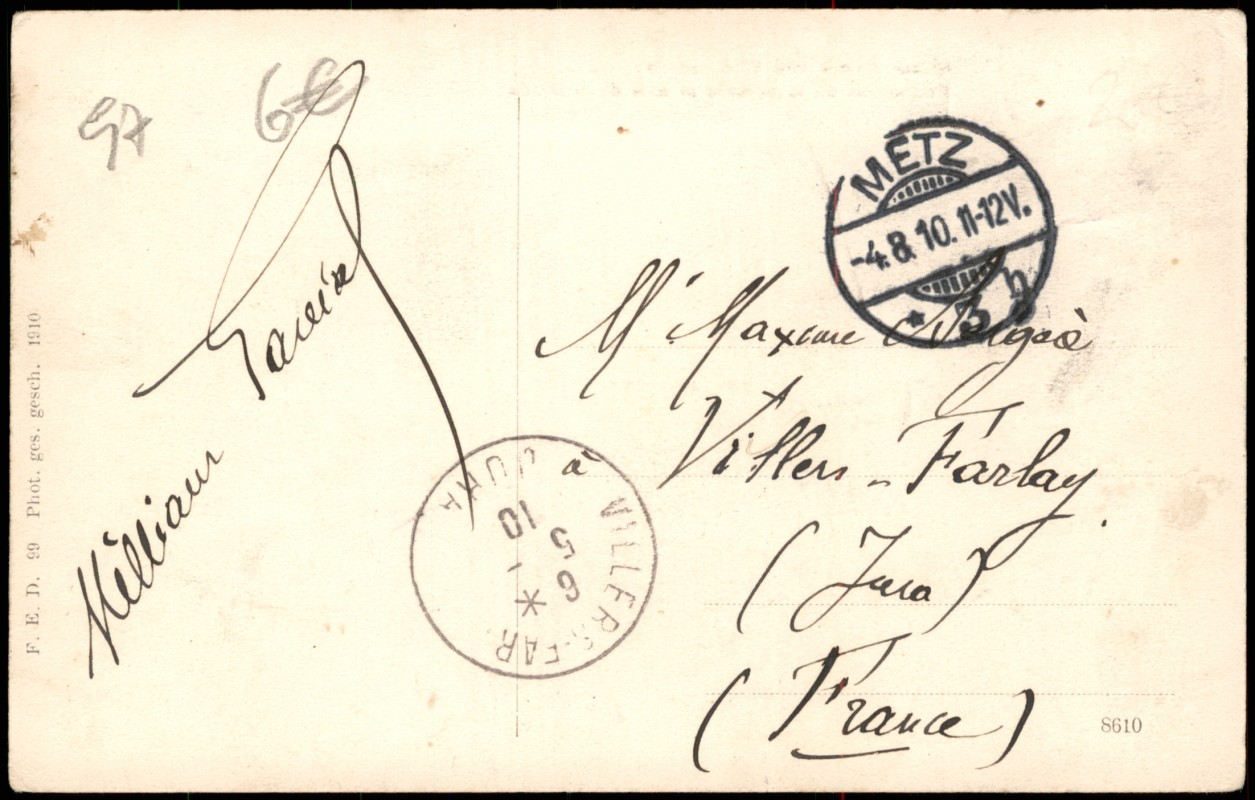 97 6€
F. E. D. 99 Phot. ges. gesch. 1910
METZ
-4.8.10.11-12V.
* 5 h
Mr Maxime
à
Villers-Farlay.
(Jura)
(France)
VILLERS-FAR. JURA
10
5
6
*
8610